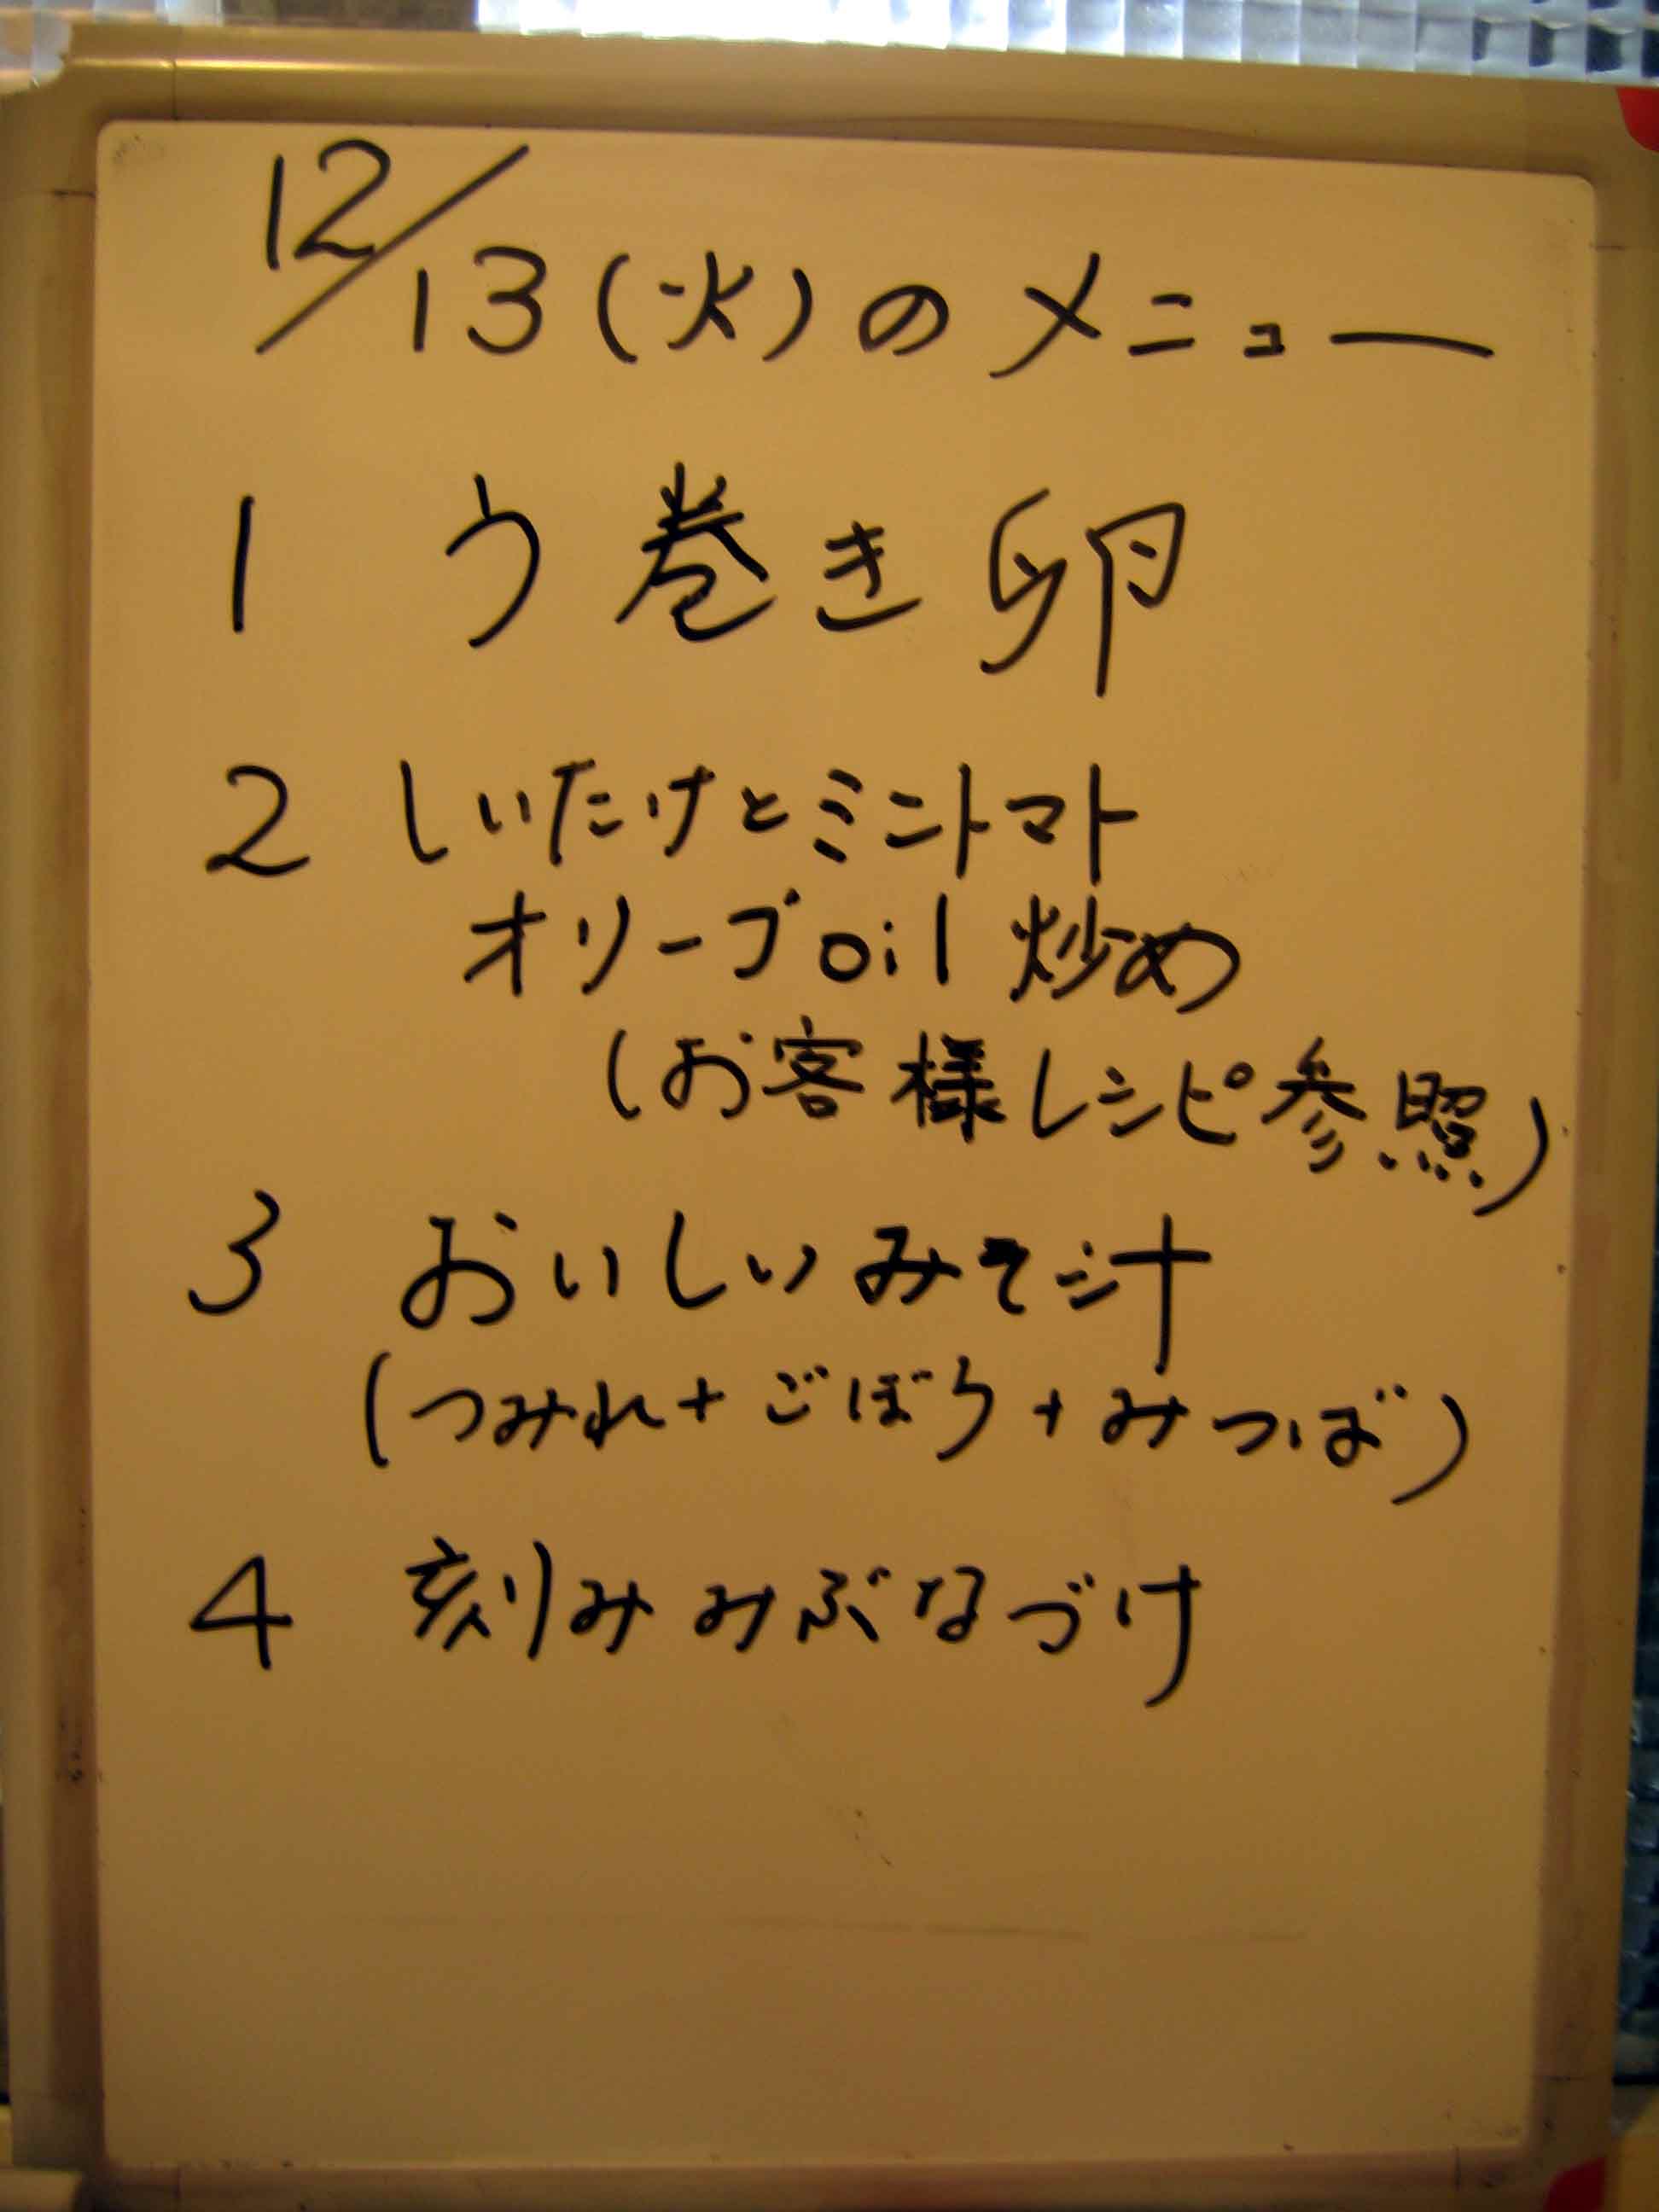 12/13(火)のメニュー
1 う巻き卵
2 しいたけとミニトマト
オリーブoil炒め
(お客様レシピ参照)
3 おいしいみそ汁
(つみれ+ごぼう+みつば)
4 刻みみぶなづけ